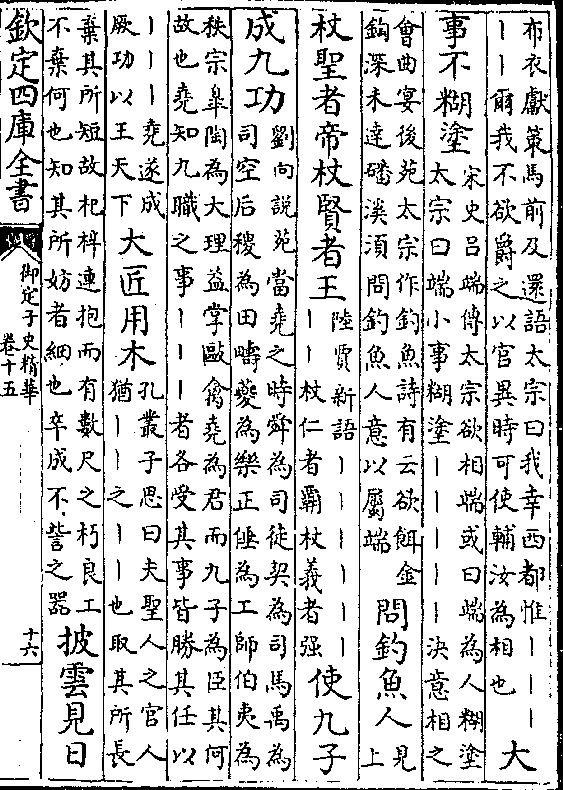 布衣獻策馬前及還語太宗曰我幸西都惟丨丨丨
丨丨爾我不欲爵之以官異時可使輔汝為相也
大
事不糊塗
宋史吕端傳太宗欲相端或曰端為人糊塗
太宗曰端小事糊塗丨丨丨丨丨決意相之
會曲宴後苑太宗作釣魚詩有云欲餌金
鈎深未達磻溪須問釣魚人意以屬端
問釣魚人
見
上
杖聖者帝杖賢者王
陸賈新語丨丨丨丨丨丨
丨丨杖仁者霸杖義者强
使九子
成九功
劉向說苑當堯之時舜為司徒契為司馬禹為
司空后稷為田疇夔為樂正倕為工師伯夷為
秩宗臯陶為大理益掌敺禽堯為君而九子為臣其何
故也堯知九職之事丨丨丨者各受其事皆勝其任以
丨丨丨堯遂成
厥功以王天下
大匠用木
孔叢子思曰夫聖人之官人
猶丨丨之丨丨也取其所長
棄其所短故杞梓連抱而有數尺之朽良工
不棄何也知其所妨者細也卒成不訾之器
披雲見日
欽定四庫全書
御定子史精華
卷十五
十六